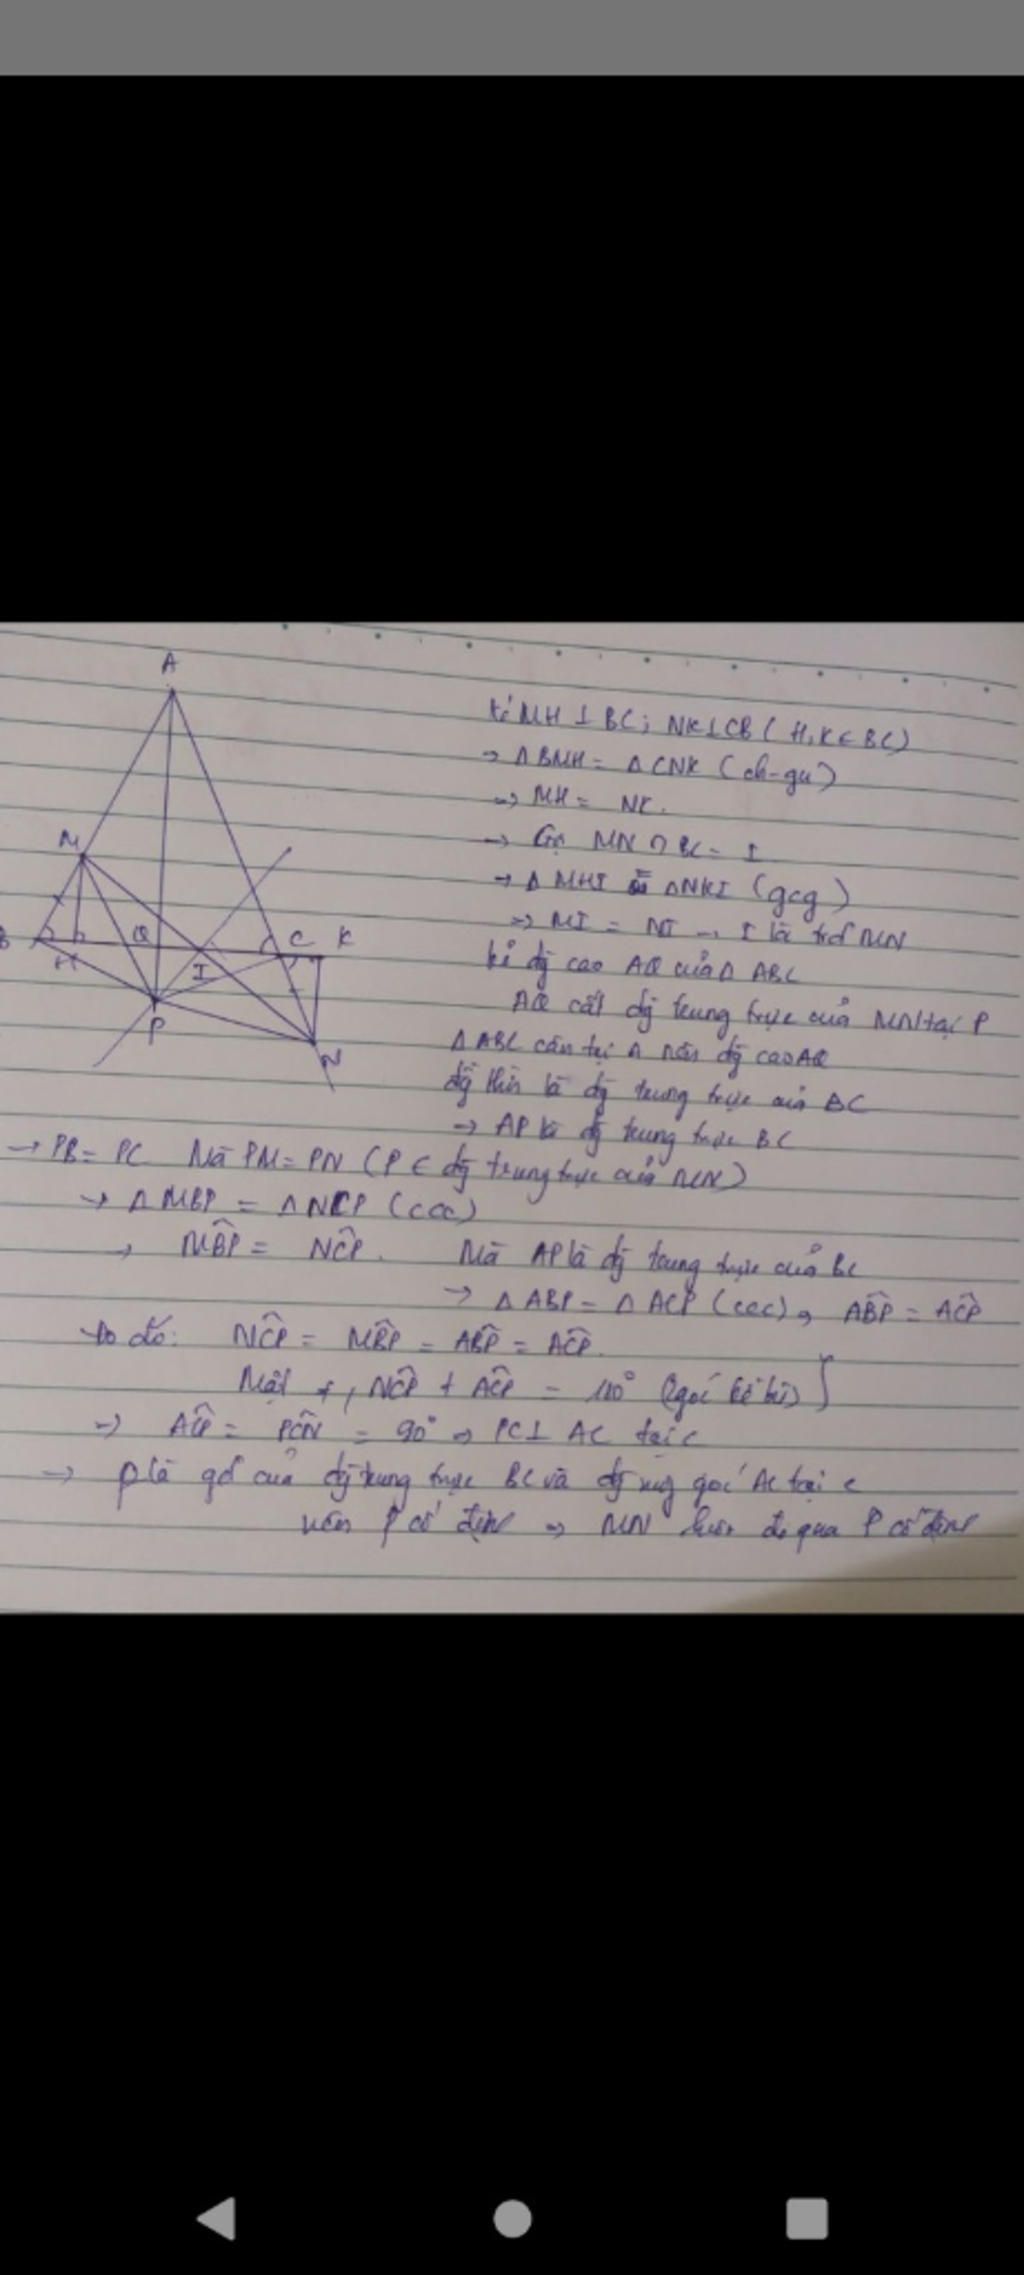 A
kẻ MH ⊥ BC; NK ⊥ CB ( H, K ∈ BC)
→ ΔBMH = ΔCNK (ch-gn)
→ MH = NK.
M
→ Gọi MN ∩ BC = I
→ Δ MHI = ΔNKI (gcg)
→ MI = NI → I là trđ MN
B H Q I C K
kẻ đg cao AQ của Δ ABC
AQ cắt đg trung trực của MN tại P
P
N
Δ ABC cân tại A nên đg cao AQ
đg thời là đg trung trực của BC
→ AP là đg trung trực BC
→ PB = PC Mà PM = PN (P ∈ đg trung trực của MN)
→ Δ MBP = Δ NCP (ccc)
→ MBP = NCP. Mà AP là đg trung trực của BC
→ Δ ABP = Δ ACP (ccc), ABP = ACP
Do đó: NCP = MBP = ABP = ACP.
Mặt ≠, NCP + ACP = 180° (2 góc kề bù)
→ ACP = PCN = 90° → PC ⊥ AC tại C
→ P là gđ của đg trung trực BC và đg vuông góc AC tại C
nên P cố định → MN luôn đi qua P cố định